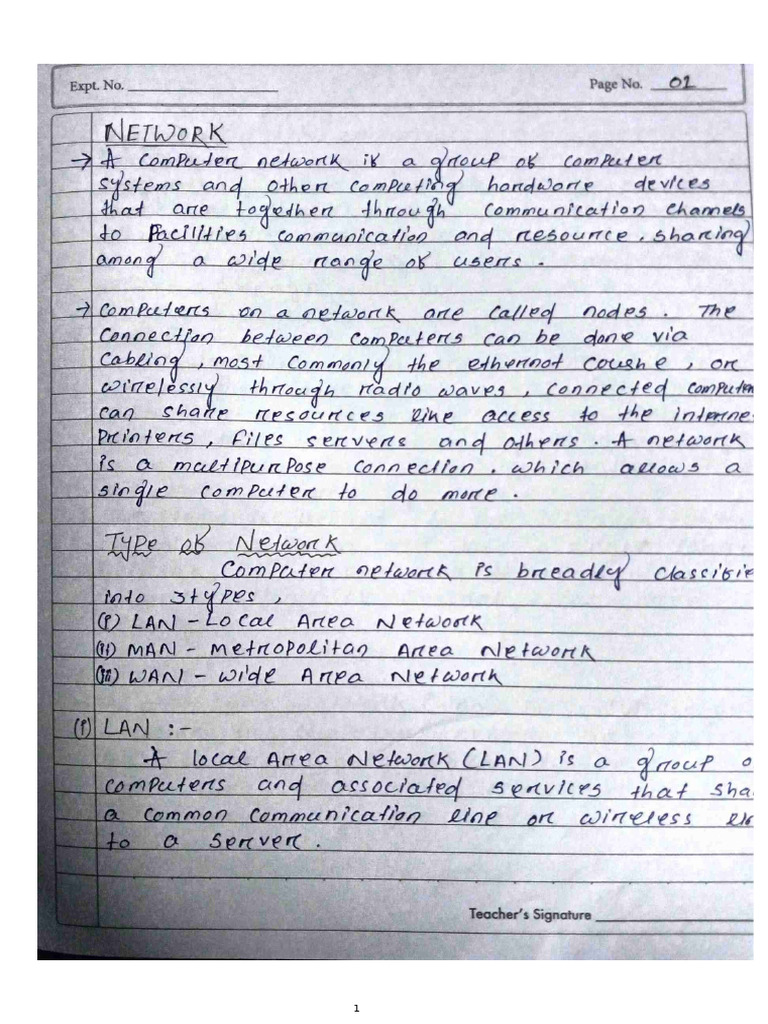 Expt. No.
Page No. 01
NETWORK
→ A computer network is a group of computer
systems and other computing hardware devices
that are together through communication channels
to Facilities communication and resource, sharing
among a wide range of users.
→ Computers on a network are called nodes. The
connection between computers can be done via
cabling, most commonly the ethernot coushe, or
wirelessly through radio waves, connected compute
can share resources like access to the interne
Printers, files servers and others. A network
is a multipurpose connection. which allows a
single computer to do more.
Type of Network
Computer network is breadly classifie
into 3types,
(i) LAN - Local Area Network
(ii) MAN - Metropolitan Area Network
(iii) WAN - Wide Area Network
(i) LAN :-
A local Area Network (LAN) is a group o
computers and associated services that sha
a common communication line or wireless lin
to a server.
Teacher's Signature
1